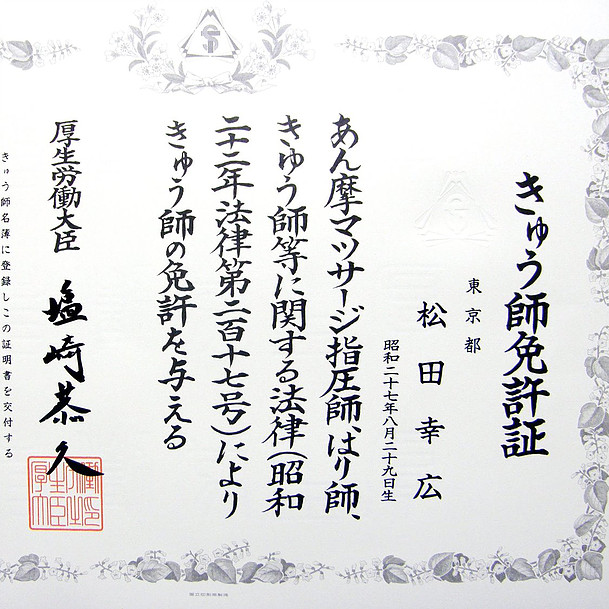 きゅう師免許証
東京都
松田幸広
昭和二十七年八月二十九日生
あん摩マツサージ指圧師、はり師、
きゆう師等に関する法律(昭和
二十二年法律第二百十七号)により
きゅう師の免許を与える
厚生労働大臣 塩崎恭久
きゅう師名簿に登録しこの証明書を交付する